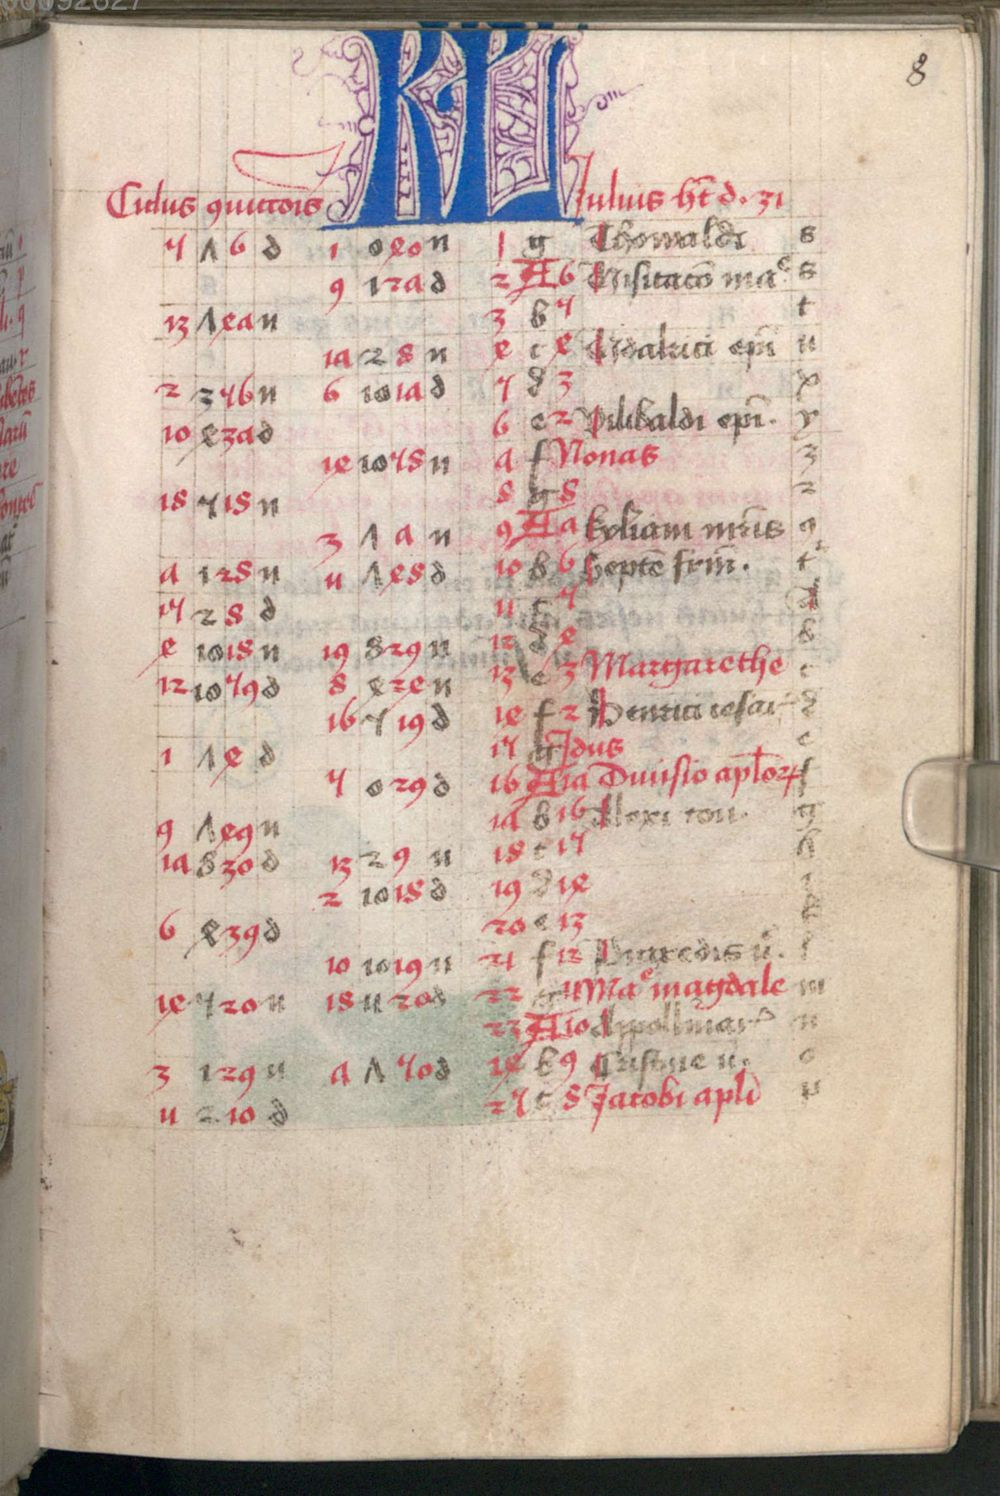 8
KL
Ciclus quictois Iulius ht d. 31
4 1 6 d 1 0 40 n 1 g Thewaldi s
9 1 27 d 2 A 6 Visitaco ma^e s
13 1 47 n 3 b 5 t
17 2 8 n 4 c 4 Udalrici epi u
2 3 56 n 6 10 17 d 5 d 3 x
10 4 37 d 6 e 2 Vilibaldi epi. y
14 10 58 n 7 f Nonas z
18 5 18 n 8 g 8 2
3 1 7 n 9 A 7 kyliani mris 9
7 1 28 n 11 1 48 d 10 b 6 Septe frm. t
15 2 8 d 11 c 5
4 10 18 n 19 8 29 n 12 d 4 b
12 10 59 d 8 4 24 n 13 e 3 Margarethe c
16 5 19 d 14 f 2 Henrici d
1 1 4 d 15 g Idus e
5 0 29 d 16 A 17 Divisio aplor f
9 1 49 n 17 b 16 Alexi con. g
17 8 30 d 13 2 9 n 18 c 15 h
2 10 18 d 19 d 14 i
6 4 39 d 20 e 13 k
10 10 19 n 21 f 12 Praxedis v. l
14 5 20 n 18 11 20 d 22 g 11 Ma^e magdale m
23 A 10 Appollinar n
3 1 29 n 7 1 50 d 24 b 9 Cristine v. o
11 2 10 d 25 c 8 Jacobi apli p